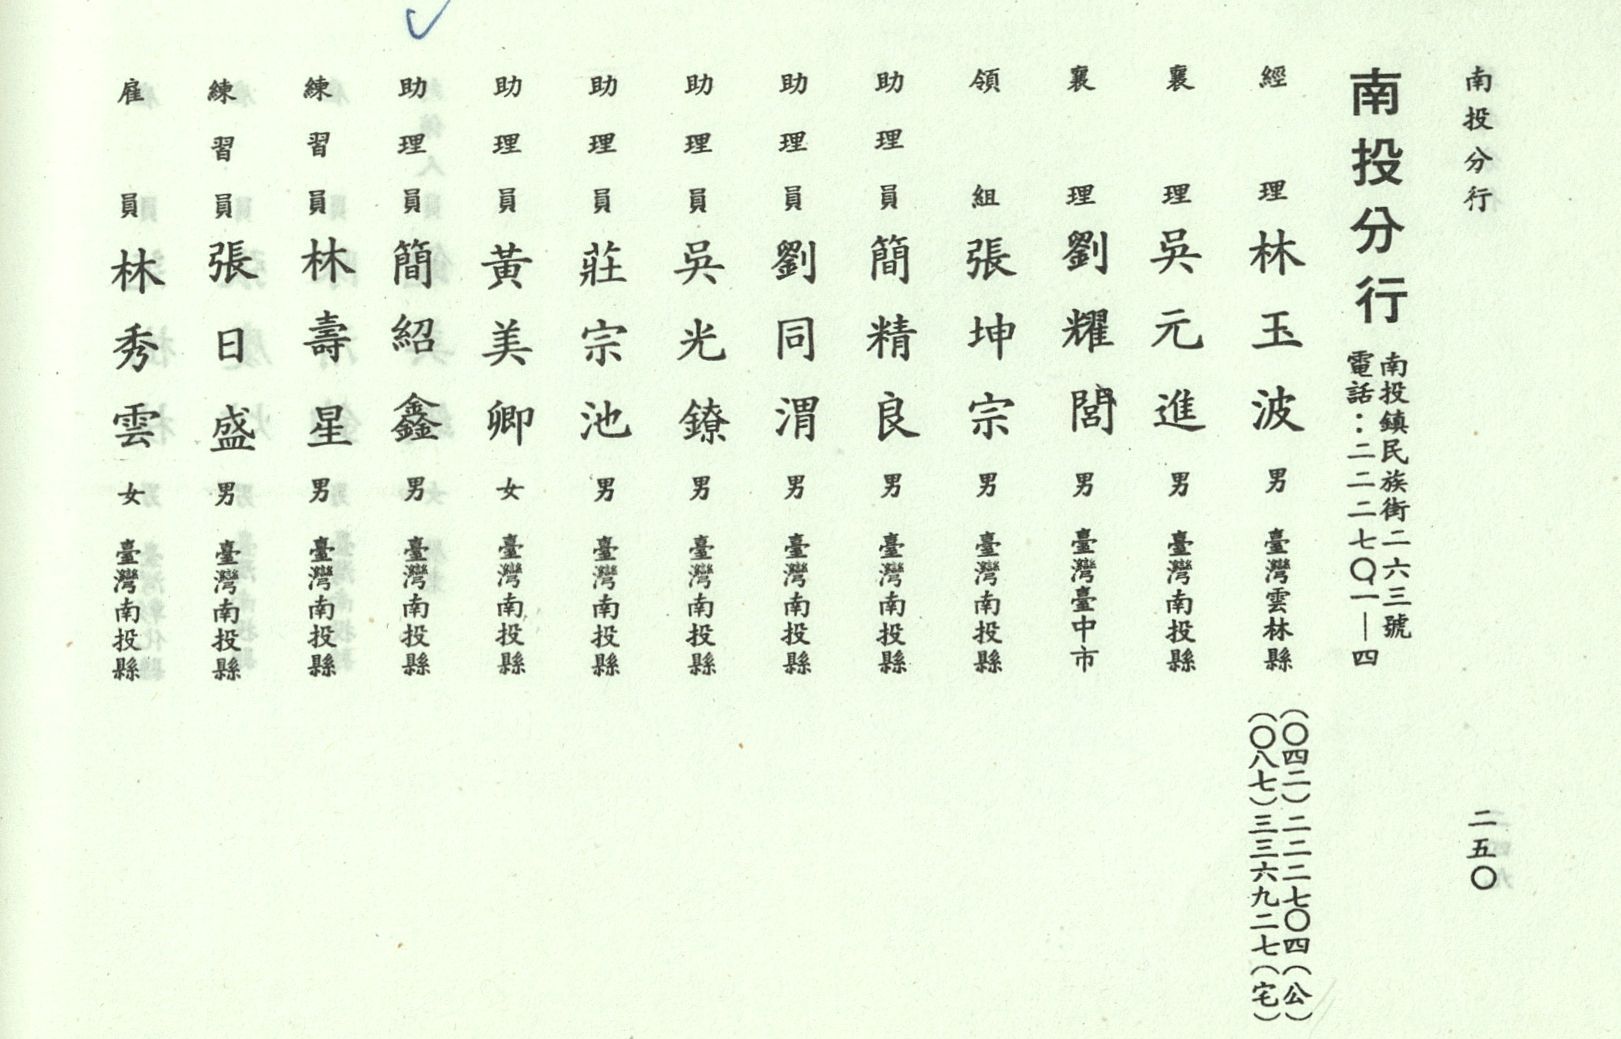 南投分行
二五〇
南投分行
南投鎮民族街二六三號
電話：二二二七〇一—四
經理 林玉波 男 臺灣雲林縣
（〇四二）二二二七〇四（公）
（〇八七）三三六九二七（宅）
襄理 吳元進 男 臺灣南投縣
襄理 劉耀閭 男 臺灣臺中市
領組 張坤宗 男 臺灣南投縣
助理員 簡精良 男 臺灣南投縣
助理員 劉同渭 男 臺灣南投縣
助理員 吳光鐐 男 臺灣南投縣
助理員 莊宗池 男 臺灣南投縣
助理員 黃美卿 女 臺灣南投縣
助理員 簡紹鑫 男 臺灣南投縣
練習員 林壽星 男 臺灣南投縣
練習員 張日盛 男 臺灣南投縣
雇員 林秀雲 女 臺灣南投縣